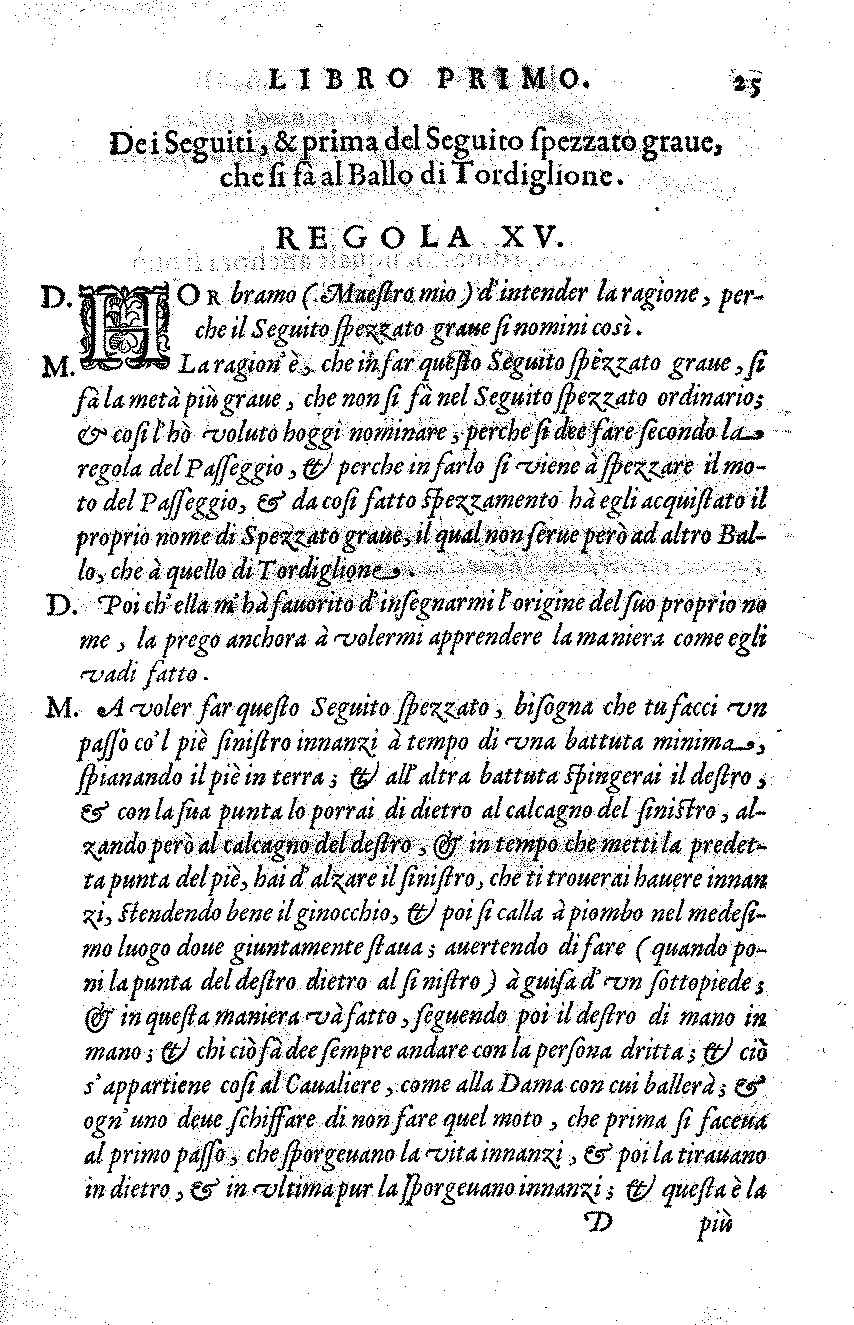 LIBRO PRIMO. 25
Dei Seguiti, & prima del Seguito ſpezzato graue,
che ſi fà al Ballo di Tordiglione.
REGOLA XV.
D. HOR bramo (Maeſtro mio) d'intender la ragione, per-
che il Seguito ſpezzato graue ſi nomini così.
M. La ragion'è, che in far queſto Seguito ſpezzato graue, ſi
fà la metà più graue, che non ſi fà nel Seguito ſpezzato ordinario;
& coſi l'hò voluto hoggi nominare, perche ſi dee fare ſecondo la
regola del Paſſeggio, & perche in farlo ſi viene à ſpezzare il mo-
to del Paſſeggio, & da coſi fatto ſpezzamento hà egli acquiſtato il
proprio nome di Spezzato graue, il qual non ſerue però ad altro Bal-
lo, che à quello di Tordiglione.
D. Poi ch'ella m'hà fauorito d'inſegnarmi l'origine del ſuo proprio no
me, la prego anchora à volermi apprendere la maniera come egli
vadi fatto.
M. A voler far queſto Seguito ſpezzato, biſogna che tu facci vn
paſſo co'l piè ſiniſtro innanzi à tempo di vna battuta minima,
ſpianando il piè in terra; & all'altra battuta ſpingerai il deſtro,
& con la ſua punta lo porrai di dietro al calcagno del ſiniſtro, al-
zando però al calcagno del deſtro, & in tempo che metti la predet-
ta punta del piè, hai d'alzare il ſiniſtro, che ti trouerai hauere innan
zi, ſtendendo bene il ginocchio, & poi ſi calla à piombo nel medeſi-
mo luogo doue giuntamente ſtaua; auertendo di fare (quando po-
ni la punta del deſtro dietro al ſiniſtro) à guiſa d'vn ſottopiede;
& in queſta maniera và fatto, ſeguendo poi il deſtro di mano in
mano; & chi ciò fà dee ſempre andare con la perſona dritta; & ciò
s'appartiene coſi al Caualiere, come alla Dama con cui ballerà; &
ogn'uno deue ſchiffare di non fare quel moto, che prima ſi faceua
al primo paſſo, che ſporgeuano la vita innanzi, & poi la tirauano
in dietro, & in vltima pur la ſporgeuano innanzi; & queſta è la
D più